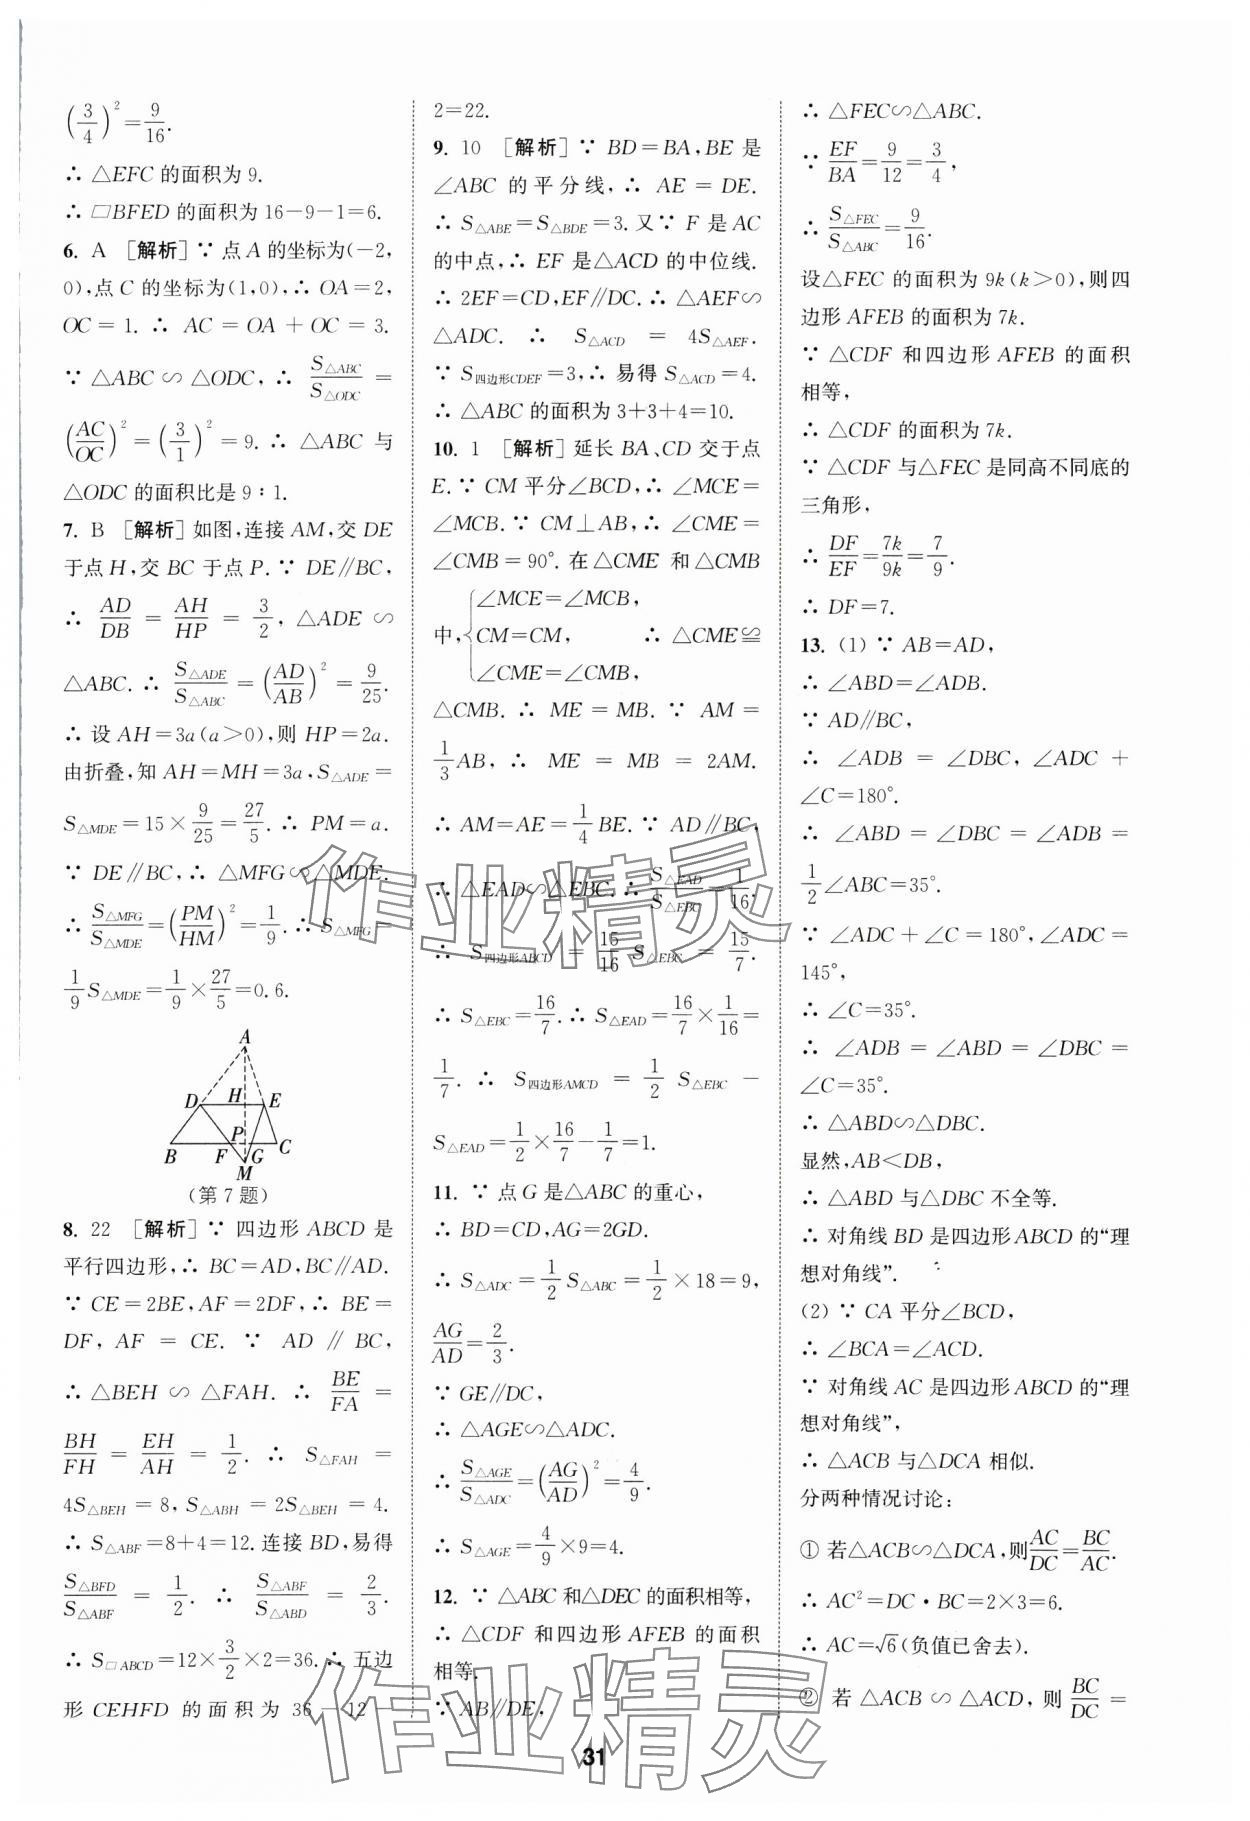 (3/4)²=9/16.
∴ △EFC 的面积为 9.
∴ □BFED 的面积为 16-9-1=6.
6. A [解析] ∵ 点 A 的坐标为(-2,
0),点 C 的坐标为(1,0),∴ OA=2,
OC=1. ∴ AC=OA+OC=3.
∵ △ABC∽△ODC, ∴ S△ABC/S△ODC=
(AC/OC)²=(3/1)²=9. ∴ △ABC 与
△ODC 的面积比是 9∶1.
7. B [解析] 如图,连接 AM,交 DE
于点 H,交 BC 于点 P. ∵ DE∥BC,
∴ AD/DB=AH/HP=3/2, △ADE∽
△ABC. ∴ S△ADE/S△ABC=(AD/AB)²=9/25.
∴ 设 AH=3a(a>0),则 HP=2a.
由折叠,知 AH=MH=3a,S△ADE=
S△MDE=15×9/25=27/5. ∴ PM=a.
∵ DE∥BC,∴ △MFG∽△MDE.
∴ S△MFG/S△MDE=(PM/HM)²=1/9. ∴ S△MFG=
1/9 S△MDE=1/9×27/5=0.6.
A
D H E
B F P G C
M
(第 7 题)
8. 22 [解析] ∵ 四边形 ABCD 是
平行四边形,∴ BC=AD,BC∥AD.
∵ CE=2BE,AF=2DF,∴ BE=
DF, AF=CE. ∵ AD∥BC,
∴ △BEH∽△FAH. ∴ BE/FA=
BH/FH=EH/AH=1/2. ∴ S△FAH=
4S△BEH=8, S△ABH=2S△BEH=4.
∴ S△ABF=8+4=12. 连接 BD,易得
S△BFD/S△ABF=1/2. ∴ S△ABF/S△ABD=2/3.
∴ S□ABCD=12×3/2×2=36. ∴ 五边
形 CEHFD 的面积为 36-12-
2=22.
9. 10 [解析] ∵ BD=BA,BE 是
∠ABC 的平分线,∴ AE=DE.
∴ S△ABE=S△BDE=3. 又∵ F 是 AC
的中点,∴ EF 是△ACD 的中位线.
∴ 2EF=CD,EF∥DC. ∴ △AEF∽
△ADC. ∴ S△ACD=4S△AEF.
∵ S四边形CDEF=3,∴ 易得 S△ACD=4.
∴ △ABC 的面积为 3+3+4=10.
10. 1 [解析] 延长 BA、CD 交于点
E. ∵ CM 平分∠BCD,∴ ∠MCE=
∠MCB. ∵ CM⊥AB,∴ ∠CME=
∠CMB=90°. 在△CME 和△CMB
∠MCE=∠MCB,
中,{CM=CM, ∴ △CME≌
∠CME=∠CMB,
△CMB. ∴ ME=MB. ∵ AM=
1/3 AB, ∴ ME=MB=2AM.
∴ AM=AE=1/4 BE. ∵ AD∥BC,
∴ △EAD∽△EBC. ∴ S△EAD/S△EBC=1/16.
∴ S四边形ABCD=15/16 S△EBC=15/7.
∴ S△EBC=16/7. ∴ S△EAD=16/7×1/16=
1/7. ∴ S四边形AMCD=1/2 S△EBC-
S△EAD=1/2×16/7-1/7=1.
11. ∵ 点 G 是△ABC 的重心,
∴ BD=CD,AG=2GD.
∴ S△ADC=1/2 S△ABC=1/2×18=9,
AG/AD=2/3.
∵ GE∥DC,
∴ △AGE∽△ADC.
∴ S△AGE/S△ADC=(AG/AD)²=4/9.
∴ S△AGE=4/9×9=4.
12. ∵ △ABC 和△DEC 的面积相等,
∴ △CDF 和四边形 AFEB 的面积
相等.
∵ AB∥DE,
∴ △FEC∽△ABC.
∵ EF/BA=9/12=3/4,
∴ S△FEC/S△ABC=9/16.
设△FEC 的面积为 9k(k>0),则四
边形 AFEB 的面积为 7k.
∵ △CDF 和四边形 AFEB 的面积
相等,
∴ △CDF 的面积为 7k.
∵ △CDF 与△FEC 是同高不同底的
三角形,
∴ DF/EF=7k/9k=7/9.
∴ DF=7.
13. (1) ∵ AB=AD,
∴ ∠ABD=∠ADB.
∵ AD∥BC,
∴ ∠ADB=∠DBC, ∠ADC+
∠C=180°.
∴ ∠ABD=∠DBC=∠ADB=
1/2∠ABC=35°.
∵ ∠ADC+∠C=180°,∠ADC=
145°,
∴ ∠C=35°.
∴ ∠ADB=∠ABD=∠DBC=
∠C=35°.
∴ △ABD∽△DBC.
显然,AB<DB,
∴ △ABD 与△DBC 不全等.
∴ 对角线 BD 是四边形 ABCD 的“理
想对角线”.
(2) ∵ CA 平分∠BCD,
∴ ∠BCA=∠ACD.
∵ 对角线 AC 是四边形 ABCD 的“理
想对角线”,
∴ △ACB 与△DCA 相似.
分两种情况讨论:
① 若△ACB∽△DCA,则AC/DC=BC/AC.
∴ AC²=DC·BC=2×3=6.
∴ AC=√6(负值已舍去).
② 若 △ACB∽△ACD, 则 BC/DC=
31
作业精灵
作业精灵